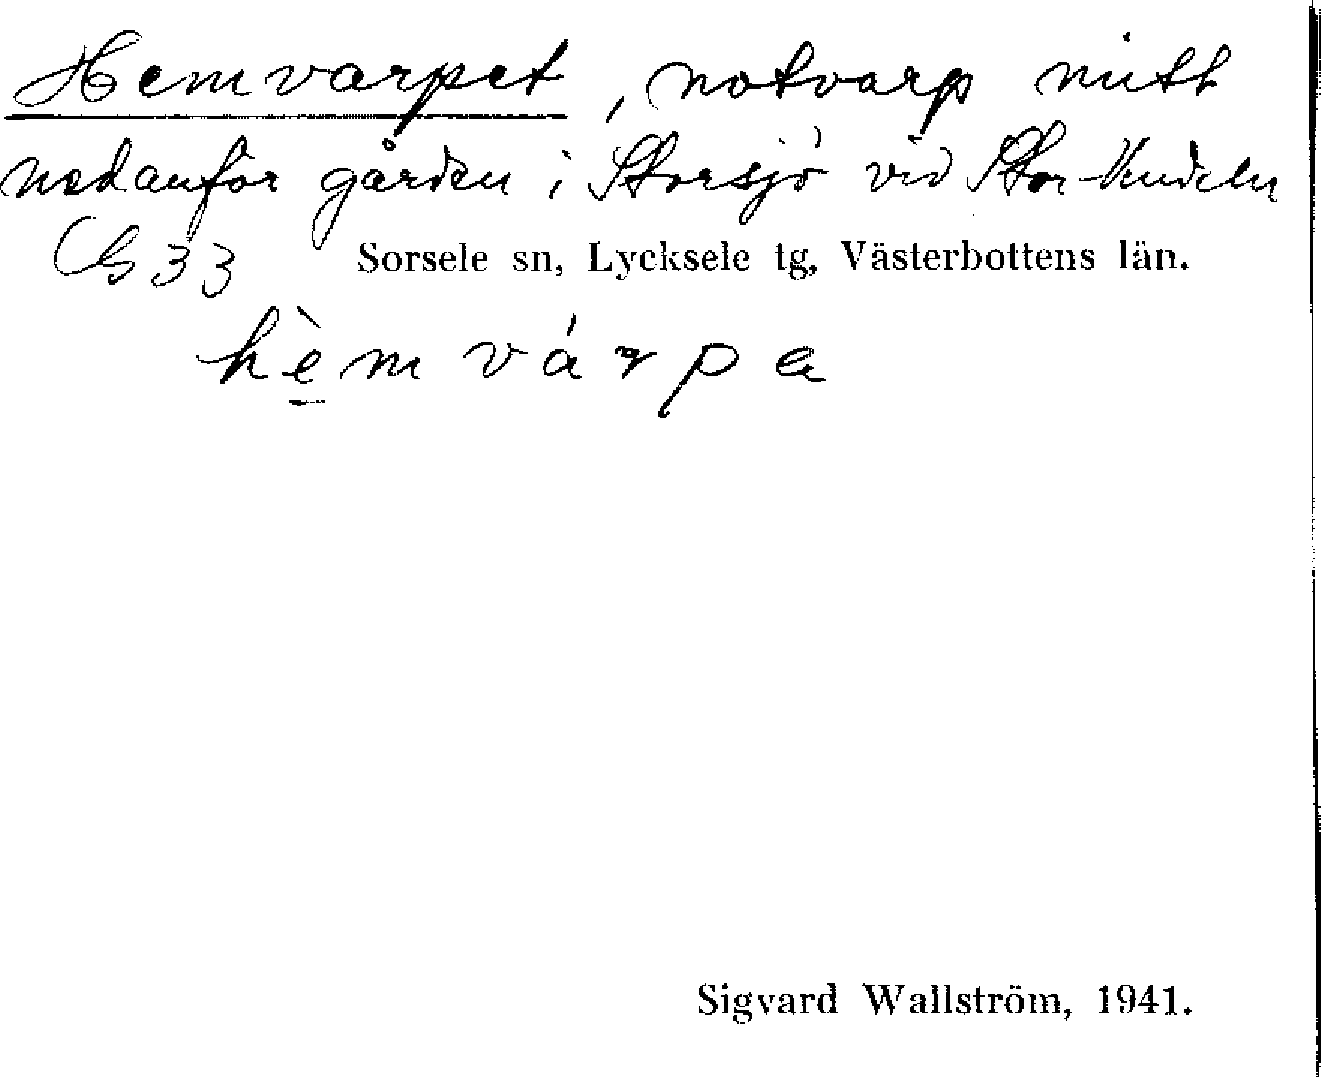 Hemvarpet, notvarp mitt
nedanför gården i Storsjö vid Stor-
G 33 Sorsele sn, Lycksele tg, Västerbottens län.
hèm várpa
Sigvard Wallström, 1941.